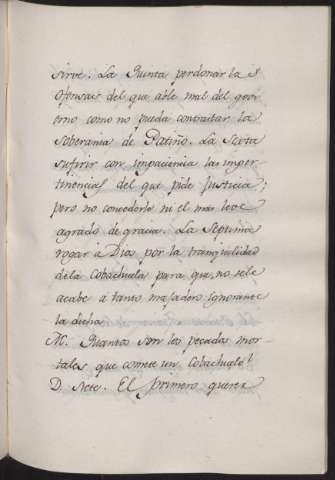 sirve. La Quinta perdonar las
Ofensas del que able mal del govi
erno como no pueda contrastar la
Soberania de Patiño. La Sexta
sufirir con impaciencia las imper
tinencias del que pide Justicia;
pero no concederle ni el mas leve
agrado de gracia. La Septima
rogar à Dios por la tranquilidad
dela Cobachuela para que no sele
acabe a tanto majadero ignorante
la dicha.
M. Quantos son los pecados mor-
tales que comete un Cobachuelo?
D. Siete. El primero querer